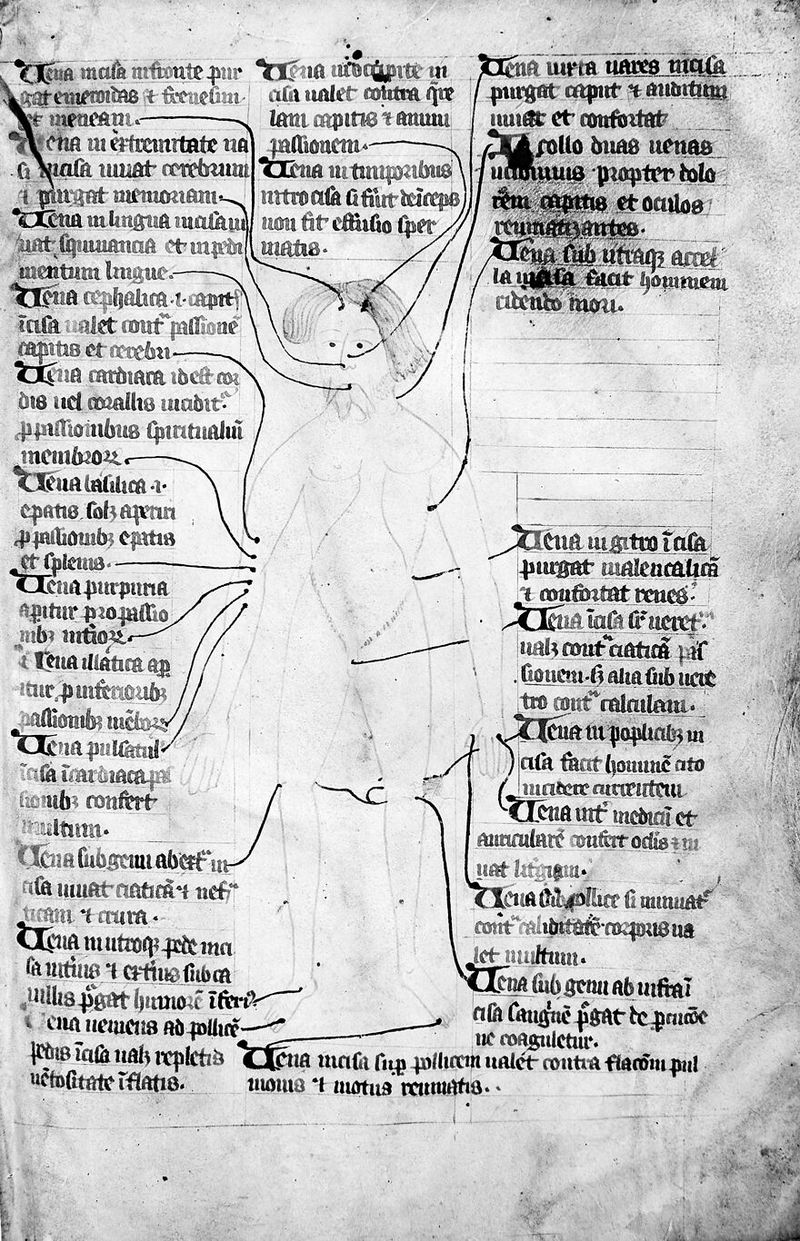 Vena incisa in fronte pur
gat emeroidas ⁊ frenesim
et
Vena in extremitate na
si incisa iuuat cerebrum
⁊ purgat memoriam
Vena in lingua incisa iu
uat squinancia et inpedi
mentum lingue.
Vena cephalica .i. capitis
īcisa ualet contᵃ passionē
capitis et cerebri
Vena cardiaca id est cor
dis uel corallis inciditᵘʳ
ꝓ passionibus spiritualiū
membroꝝ.
Vena basilica .i.
epatis solꝫ aperiri
ꝓ passionibꝫ epatis
et splenis.
Vena purpuria
apitur pro passio
nibꝫ
Vena illatica ap
itur ꝓ inferioribꝫ
passionibꝫ
Vena pulsatul
īcisa ī cardiaca pas
sionibꝫ confert
multum.
Vena sub genu in
cisa iuuat ciaticā ⁊ nef
ticam ⁊ crura.
Vena in utroqꝫ pede inci
sa interius ⁊ exterius sub ca
uillis pgat humorē
Vena ueniens ad pollicē
pedis īcisa ualꝫ repletis
uētositate īflatis.
Vena in
cisa ualet contra que
lam capitis ⁊ animi
passionem.
Vena in timporibus
intro cisa si fiūt deīceps
non fit effusio sper
matis.
Vena iuxta nares incisa
purgat caput ⁊ auditum
iuuat et confortat
collo duas uenas
propter dolo
rem capitis et oculos
reumatizantes.
Vena sub utraqꝫ accel
la incisa facit hominem
ridendo mori.
Vena in gitro īcisa
purgat malencalicā
⁊ confortat renes.
Vena īcisa
ualꝫ contᵃ ciaticā pas
sionem. sꝫ alia sub uere
tro contᵃ calculum.
Vena in poplicibꝫ in
cisa facit hominē cito
incidere currentem
Vena intᵉ medicū et
auriculare confert oclis ⁊ in
uat
Vena sub pollice si minuatᵘʳ
contᵃ caliditatē corporis ua
let multum.
Vena sub genu ab infra ī
cisa sanguē pgat de
ne coaguletur.
Vena incisa supᵃ pollicem ualet contra pul
monis ⁊ motus reumatis.